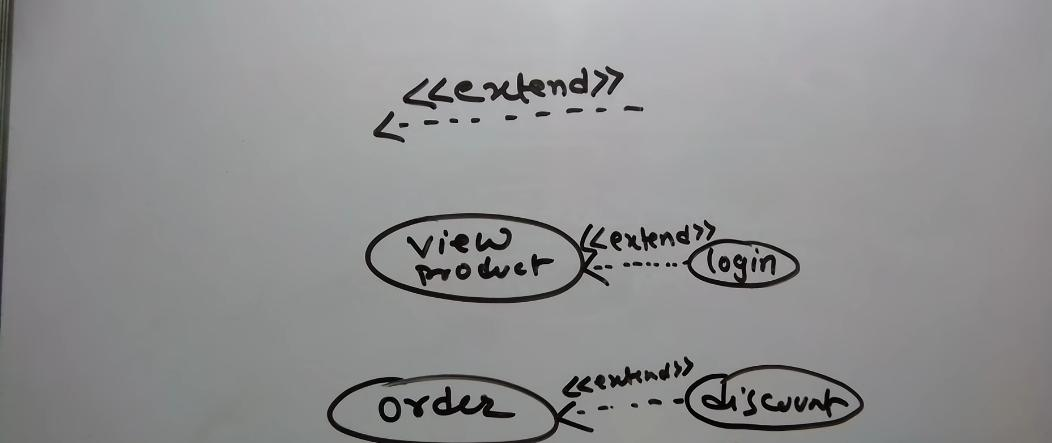 <<extend>>
view
product
<<extend>>
login
order
<<extend>>
discount